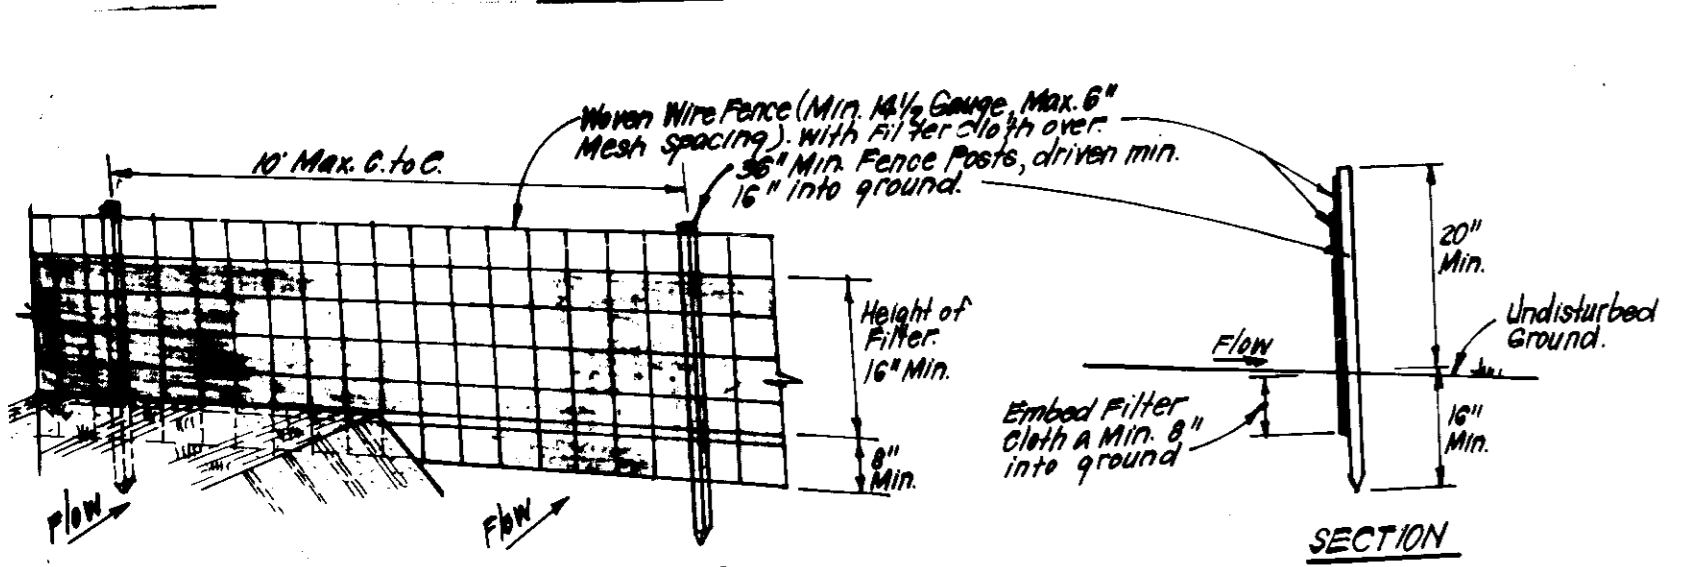 Woven Wire Fence (Min. 14½ Gauge, Max. 6"
Mesh spacing). with Filter cloth over.
36" Min. Fence Posts, driven min.
16" into ground.
10' Max. C. to C.
Height of
Filter.
16" Min.
8"
Min.
Flow
Flow
20"
Min.
Undisturbed
Ground.
Flow
Embed Filter
Cloth A Min. 8"
into ground
16"
Min.
SECTION